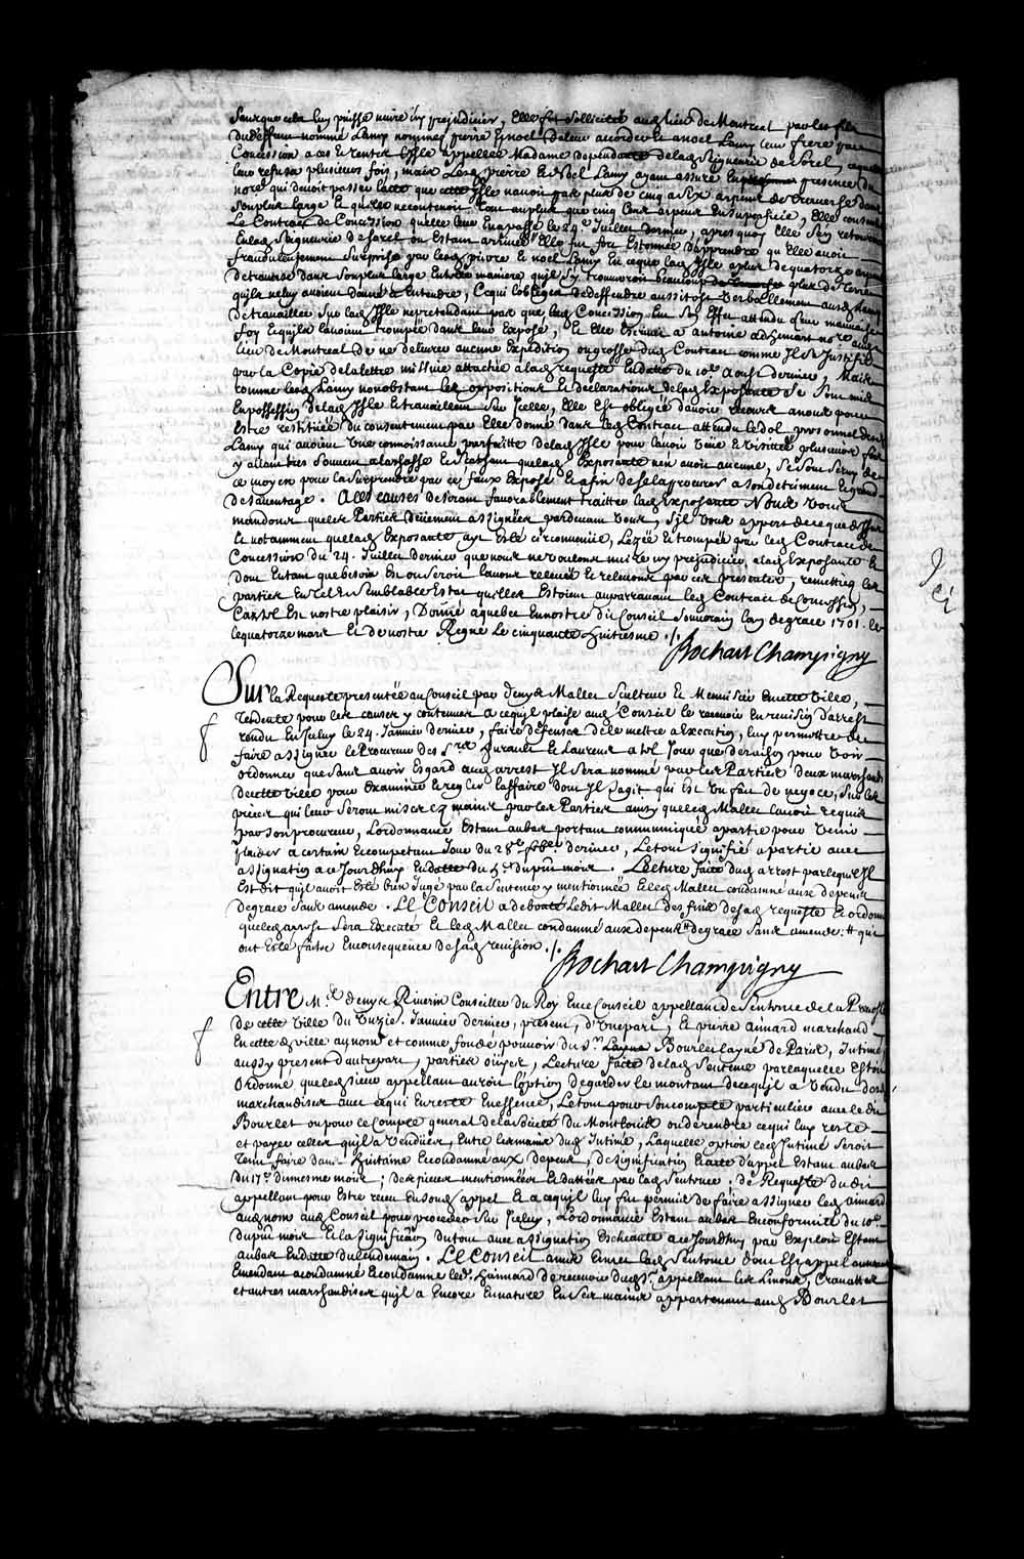 sans que cela luy puisse nuire ny prejudicier, Elle fut sollicitée audit lieu de Montreal par les fils
dudeffunt nommé Lamy nommez pierre Et noel dateur accorder Et a noel Lamy leur frere par
Concession a ces Et rentes L'isle appellée Madame dependante delad. Seigneurie de Sorel,
leur refusa plusieurs fois, mais Lesd. pierre Et Noel Lamy ayans assuré En presence du
nore. qui devoit passer l'acte que cette Isle n'avoit pas plus de cinq a six arpens de traverse dans
son plus large Et qu'elle ne contenoit tout au plus que cinq Cens arpens En superficie, Elle consentit
Le Contract de Concession qu'elle leur En a passé le 24e. Juillet dernier, apres quoy Elle s'en retourna
En lad. Seigneurie de Sorel ou Estant arrivée Elle fut fort Estonnée d'apprendre qu'Elle avoit
fraudulemment surprise par lesd. pierre Et noel Lamy En ce que lad. Isle a plus de quatorze arpens
de traverse dans son plus large En telle maniere qu'il s'y trouveroit beaucoup plus de terre
qu'ils ne luy avoient donné a Entendre, Ce qui l'obligea de deffendre aussitost verballement ausd. Lamy
de travailler sur lad. Isle ne pretendant pas que lad. Concession Eut son Effet attendu leur mauvaise
foy Et qu'ils l'avoient trompée dans leur Exposé, Et Elle Escrivit a antoine adhemart nore. aud.
lieu de Montreal de ne delivrer aucune Expedition ou grosse dud. Contract comme Il Est Justifié
par la Copie de la lettre missive attachée a lad. requeste En datte du 10e. Aoust dernier, Mais
comme lesd. Lamy nonobstant les oppositions Et declarations de lad. Exposante se sont mis
En possession de lad. Isle Et travaillent sur Icelle, Elle Est obligée d'avoir recours a nous pour
Estre restituée du consentement par Elle donné dans led. Contract attendu le dol personnel desd.
Lamy qui avoient une connoissance parfaitte de lad. Isle pour l'avoir veüe Et visittée plusieurs fois
y allant tres souvent a la chasse Et sachant que lad. Exposante n'en avoit aucune, se sont servy de
ce moyen pour la surprendre par ce faux Exposé Et afin de se la procurer a son detriment Et grand
desavantage. A Ces causes desirant favorablement traitter lad. Exposante Nous vous
mandons que les Parties deüement assignées pardevant vous, s'il vous appert de ce que dessus
Et notamment que lad. Exposante ayt Esté circonvenüe, Lezée Et trompée par led. Contract de
Concession du 24. Juillet dernier que nous ne voulons nuire ny prejudicier a lad. Exposante Et
dont En tant que besoin Est ou seroit l'avons relevée Et relevons par ces presentes, remettiez les
parties En tel Et semblable Estat qu'elles Estoient auparavant led. Contract de Concession,
Car tel Est nostre plaisir, Donné a quebec En nostre dit Conseil Souverain l'an de grace 1701. le
le quatorze mars Et de nostre Regne Le cinquante huitiesme ./.
Bochart Champigny
Sur la Requeste presentée au Conseil par denys Mallet sculteur Et Menuisier En cette ville,
Tendante pour les causes y contenues a ce qu'il plaise aud. Conseil le recevoir En revision d'arrest
rendu En Iceluy le 24. Janvier dernier, faire defenses de le mettre a Execution, luy permettre de
faire assigner le Procureur des Srs. Et Laurens a tel Jour que de raison pour voir
ordonner que sans avoir Esgard aud. arrest Il sera nommé par les Parties deux marchands
de cette ville pour Examiner Et regler l'affaire dont Il s'agit qui Est un fait de negoce, Sur les
pieces qui leur seront mises Es mains par les Parties ainsy que led. Mallet l'avoit requis
par son procureur, L'ordonnance Estant au bas portant communiqué a partie pour venir
plaider a certain Et competant Jour du 28e. febr. dernier, Le tout signifié a partie avec
assignation a ce Jourd'huy En datte du 5e. du pnt. mois. Lecture faite dud. arrest par lequel Il
Est dit qu'il avoit Esté bien jugé par la Sentence y mentionnée Et led. Mallet condamné aux depens
de grace sans amende. LE CONSEIL a debouté Ledit Mallet des fins de sad. requeste Et ordonne
que led. arrest sera Executé Et led. Mallet condamné aux depens # de grace sans amende: # qui
ont Esté faits En consequence de sad. revision ./.
Bochart Champigny
Entre Me. denys Riverin Conseiller du Roy En ce Conseil appellant de Sentence de la Prevosté
de cette ville du unzie. Janvier dernier, present, d'une part, Et pierre aimard marchand
En cette d. ville au nom et comme fondé de pouvoir du Sr. Bourlet layné de Paris, Intimé
aussy present d'autre part, parties oüyes, Lecture faite de lad. Sentence par laquelle Est
Ordonné que led. sieur appellant auroit l'option de garder le montant de ce qu'il a vendu desd.
marchandises avec ce qui En reste En essence, Le tout pour son compte particulier avec led.
Bourlet ou pour ce Compte general de la société du Montlouis ou de rendre ce qui luy reste
et payer celles qu'il a vendües, Entre les mains dud. Intimé, Laquelle option led. Intimé seroit
tenu faire dans huitaine Et condamné aux depens, de signification Et acte d'appel Estant au bas
du 17e. du mesme mois; des pieces mentionnées Et dattées par lad. Sentence: de Requeste dudit
appellant pour Estre receu En son d. appel Et a ce qu'il luy fut permis de faire assigner led. aimard
aud. nom aud. Conseil pour proceder sur Iceluy, L'ordonnance Estant au bas En conformité du 10e.
du pnt. mois Et la signification du tout avec assignation Escheante a ce Jourd'huy par Exploit Estant
au bas En datte du lendemain. LE CONSEIL a mis Et met lad. Sentence dont Est appel au neant
Emendant a condamné Et condamne led. haimard de recevoir dud. Sr. appellant les linons, Cravattes
et autres marchandises qu'il a Encore En nature En ses mains appartenant aud. Bourlet